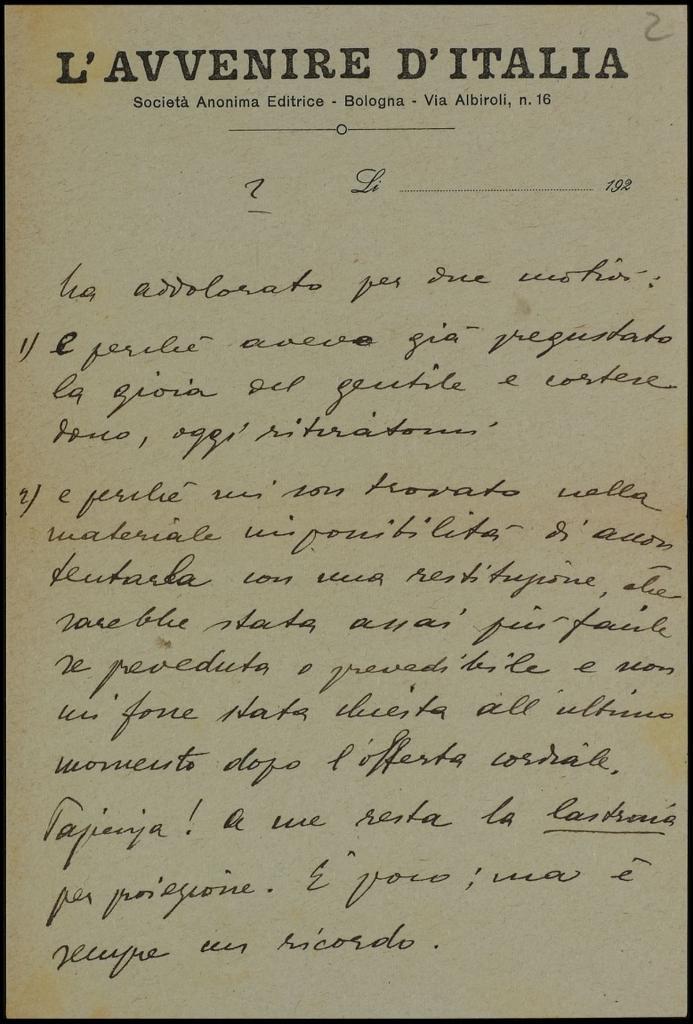 2
L'AVVENIRE D'ITALIA
Società Anonima Editrice - Bologna - Via Albiroli, n. 16
2 Li 192
ha addolorato per due motivi:
1) e perchè avevo già pregustato
la gioia del gentile e cortese
dono, oggi ritiratomi
2) e perchè mi son trovato nella
materiale impossibilità di accon
tentarla con una restituzione, che
sarebbe stata assai più facile
se preveduta o prevedibile e non
mi fosse stata chiesta all'ultimo
momento dopo l'offerta cordiale.
Pazienza! A me resta la lastrina
per proiezione. E' poco; ma è
sempre un ricordo.